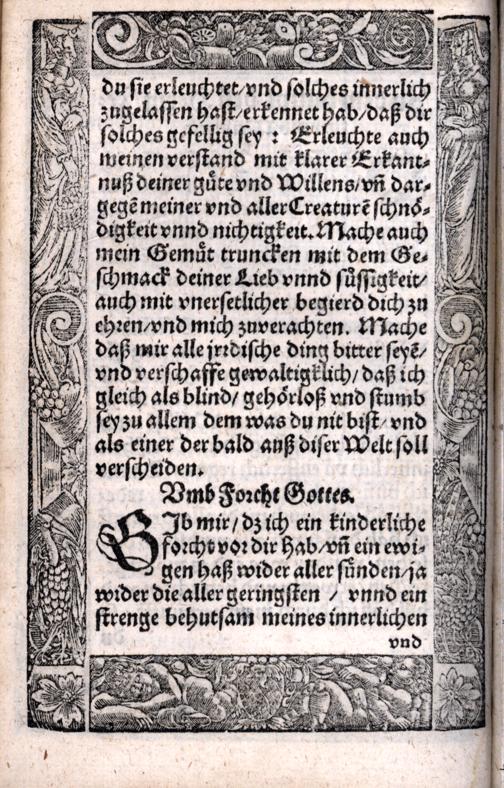 du sie erleuchtet/vnd solches innerlich
zugelassen hast/erkennet hab/daß dir
solches gefellig sey : Erleuchte auch
meinen verstand mit klarer Erkant⸗
nuß deiner gůte vnd Willens/vñ dar⸗
gegẽ meiner vnd aller Creaturẽ schnö⸗
digkeit vnnd nichtigkeit. Mache auch
mein Gemůt truncken mit dem Ge⸗
schmack deiner Lieb vnnd süssigkeit/
auch mit vnersetlicher begierd dich zu
ehren/vnd mich zuverachten. Mache
daß mir alle jrrdische ding bitter seyẽ/
vnd verschaffe gewaltigklich/ daß ich
gleich als blind/ gehörloß vnd stumb
sey zu allem dem was du nit bist/ vnd
als einer der bald auß diser Welt soll
verscheiden.
Vmb Forcht Gottes.
GJb mir/ dz ich ein kinderliche
forcht vor dir hab/vñ ein ewi⸗
gen haß wider aller sünden/ja
wider die aller geringsten / vnnd ein
strenge behutsam meines innerlichen
vnd